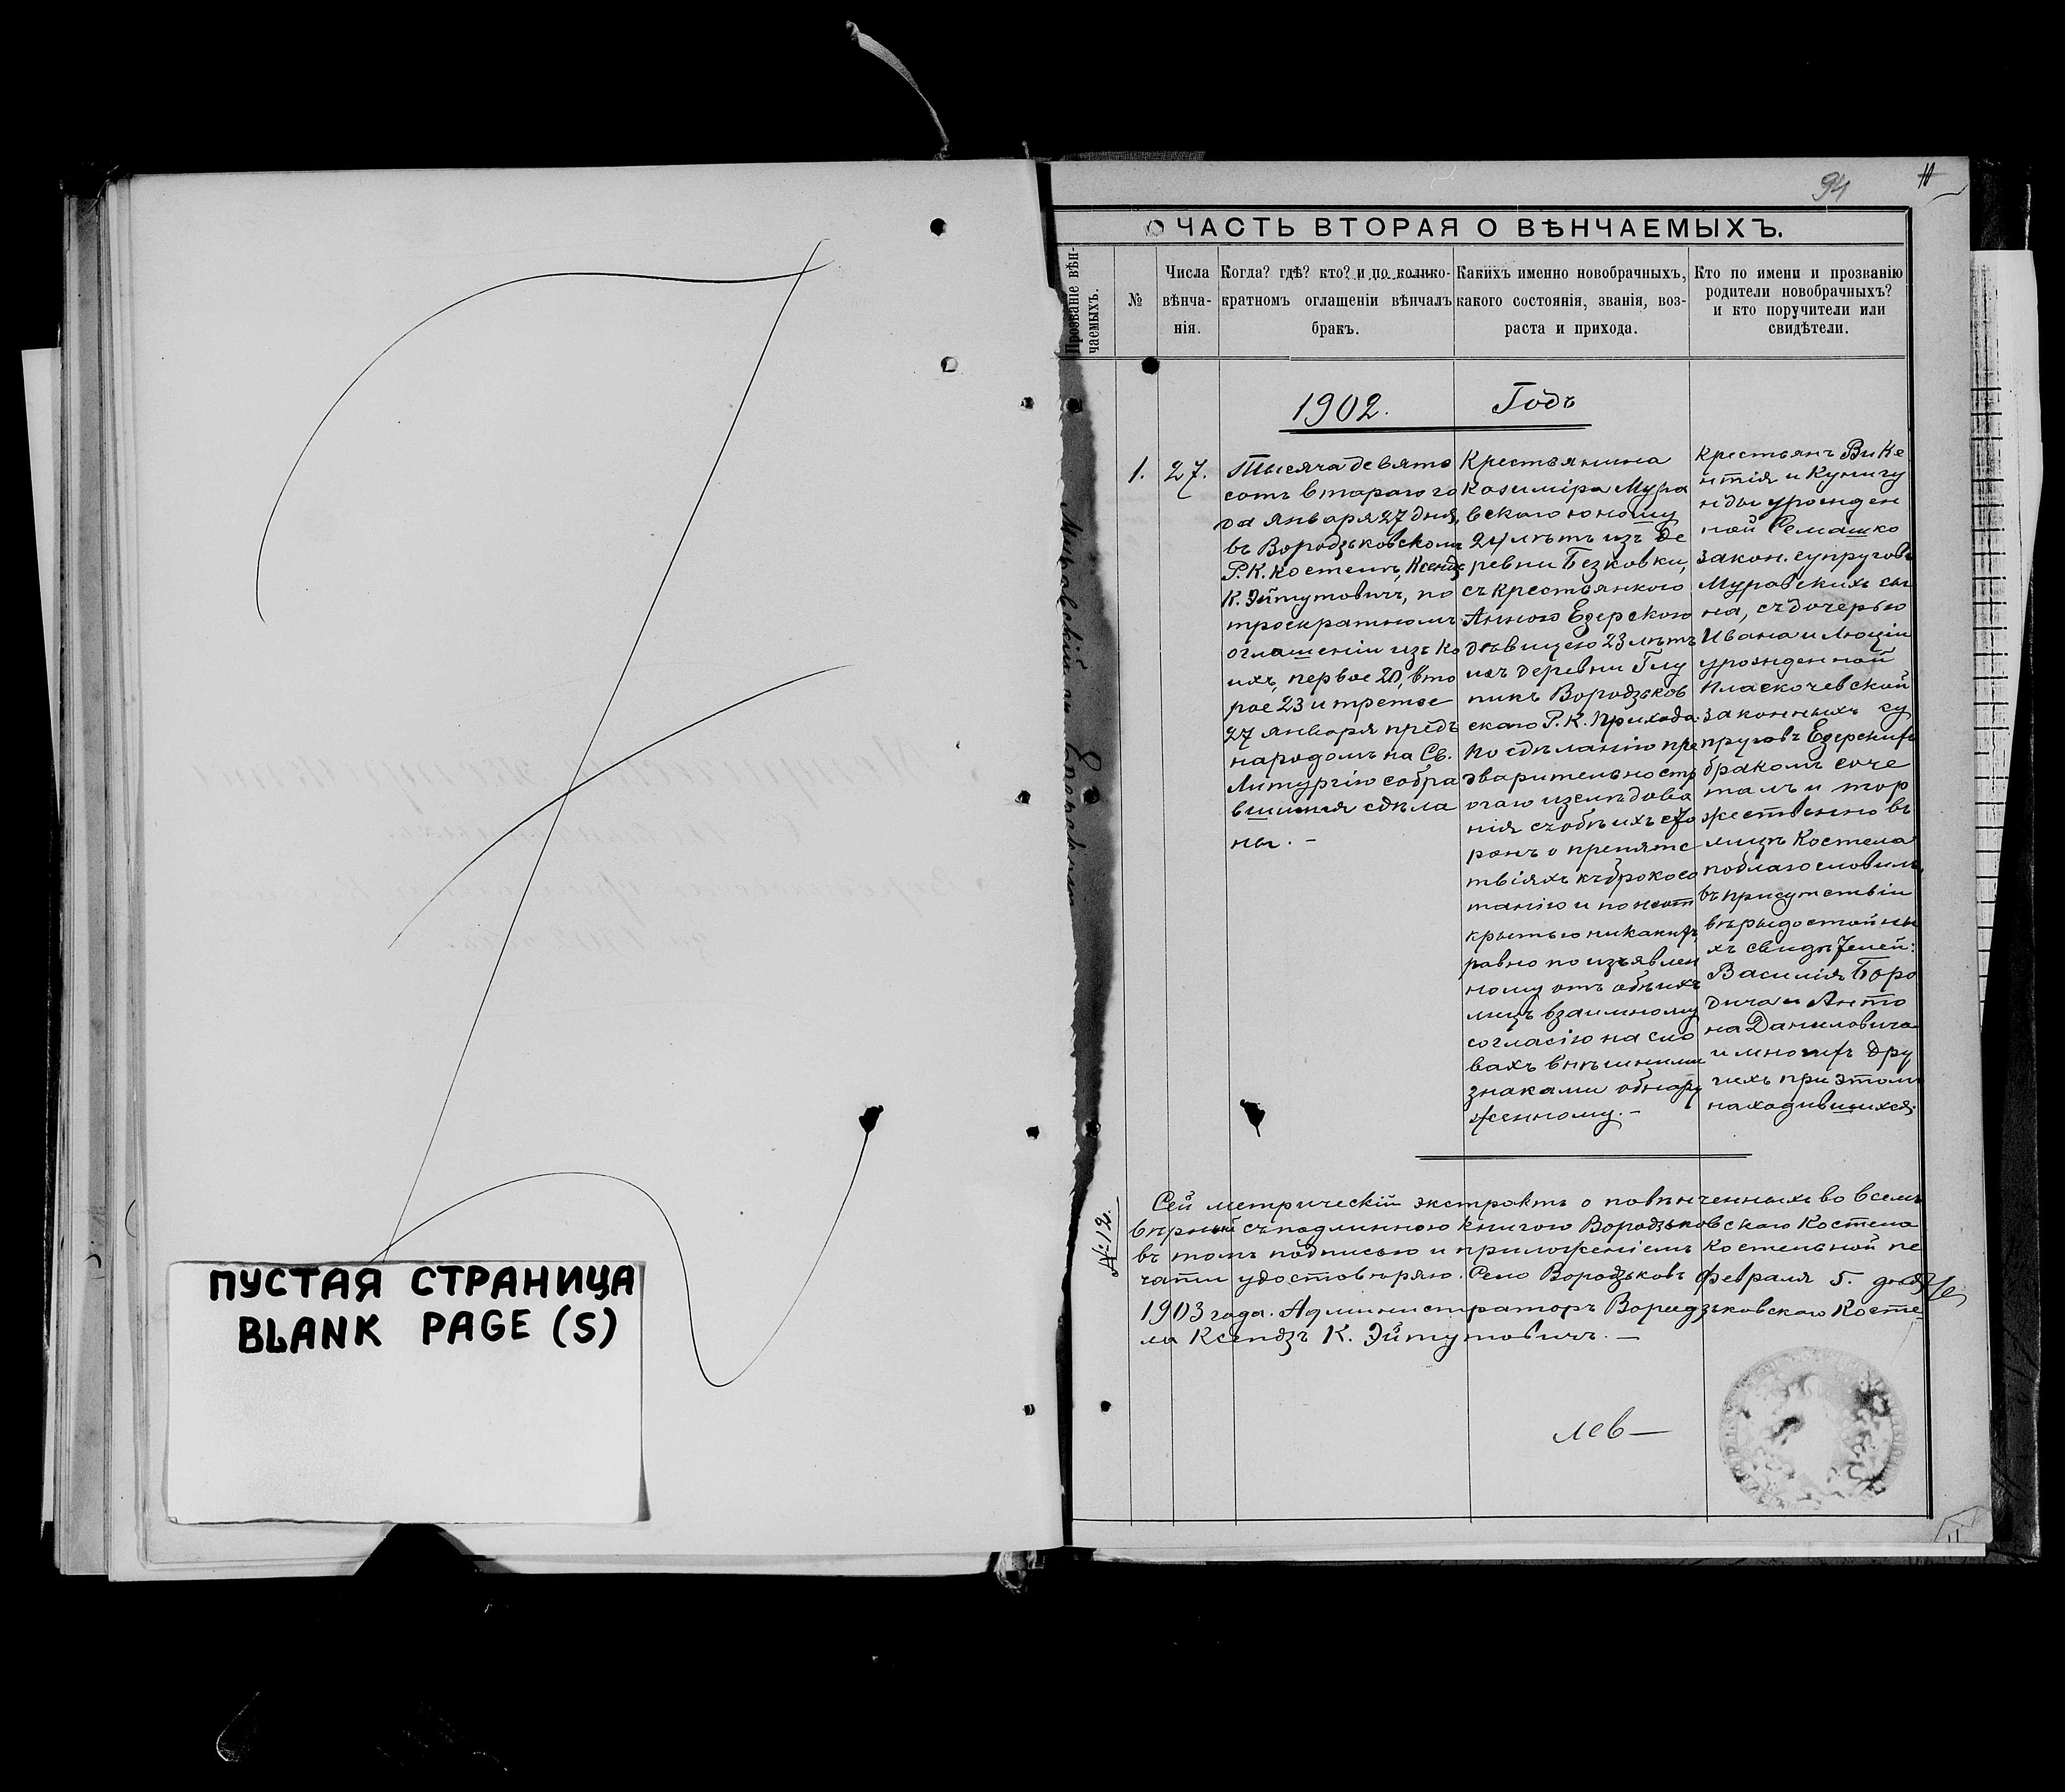 ПУСТАЯ СТРАНИЦА
BLANK PAGE (S)
94
ЧАСТЬ ВТОРАЯ О ВѢНЧАЕМЫХЪ.
Прозваніе вѣн-
чаемыхъ.
№
Числа
вѣнча-
нія.
Когда? гдѣ? кто? и по колико-
кратномъ оглашеніи вѣнчалъ
бракъ.
Какихъ именно новобрачныхъ,
какого состоянія, званія, воз-
раста и прихода.
Кто по имени и прозванію
родители новобрачныхъ?
и кто поручители или
свидѣтели.
1902. Годъ
Муравскій съ Езерскою
1.
27.
Тысяча девято
сотъ втораго го
да Января 27 дня,
въ Вородзьковскомъ
Р. К. Костелѣ, Ксендзъ
К. Эйтутовичъ, по
троекратномъ
оглашеніи изъ ко
ихъ, первое 20, вто
рое 23 и третое
27 января предъ
народомъ на Св.
Литургію собра
вшимся сдѣла
ны. –
Крестьянина
Казиміра Мура
вскаго юношу
24 лѣтъ изъ де
ревни Безковки,
съ крестьянкою
Анною Езерскою
дѣвицею 23 лѣтъ
изъ деревни Глу
пикъ Вородзьков
скаго Р. К. Прихода.
По сдѣланію пре
дварительно стр
огаго изслѣдова
нія съ обѣихъ сто
ронъ о препятс
твіяхъ къ бракосо
танію и по неот
крытью никакихъ,
равно по изъявлен
ному отъ обѣихъ
лицъ взаимному
согласію на сло
вахъ внѣшними
знаками обнару
женному. –
Крестьянъ Вике
нтія и Кунигу
нды урожден
ной Семашко
закон. супруговъ
Муравскихъ сы
на, съ дочерью
Ивана и Люціи
урожденной
Пласкочевской
законныхъ су
пруговъ Езерскихъ
бракомъ соче
талъ и тор
жественно въ
лицѣ Костела
поблагословилъ,
въ присутствіи
вѣрыдостойны
хъ свидѣтелей:
Василія Боро
дича и Анто
на Даниловича
и многихъ дру
гихъ при этомъ
находившихся.
№ 12.
Сей метрическій экстрактъ о повѣнченныхъ во всемъ
вѣрный съ подлинною книгою Вородзьковскаго Костела
въ томъ подписью и приложеніемъ Костельной пе
чати удостовѣряю. Село Вородзьковъ Февраля 5. дня
1903 года. Администраторъ Вородзьковскаго Косте
ла Ксендзъ К. Эйтутовичъ. –
лев–
11